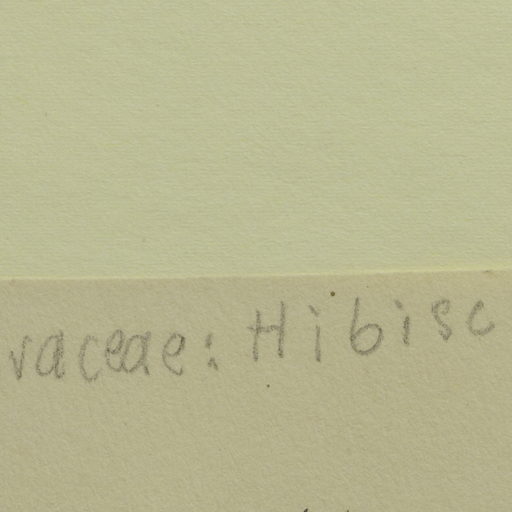 vaceae: Hibisc